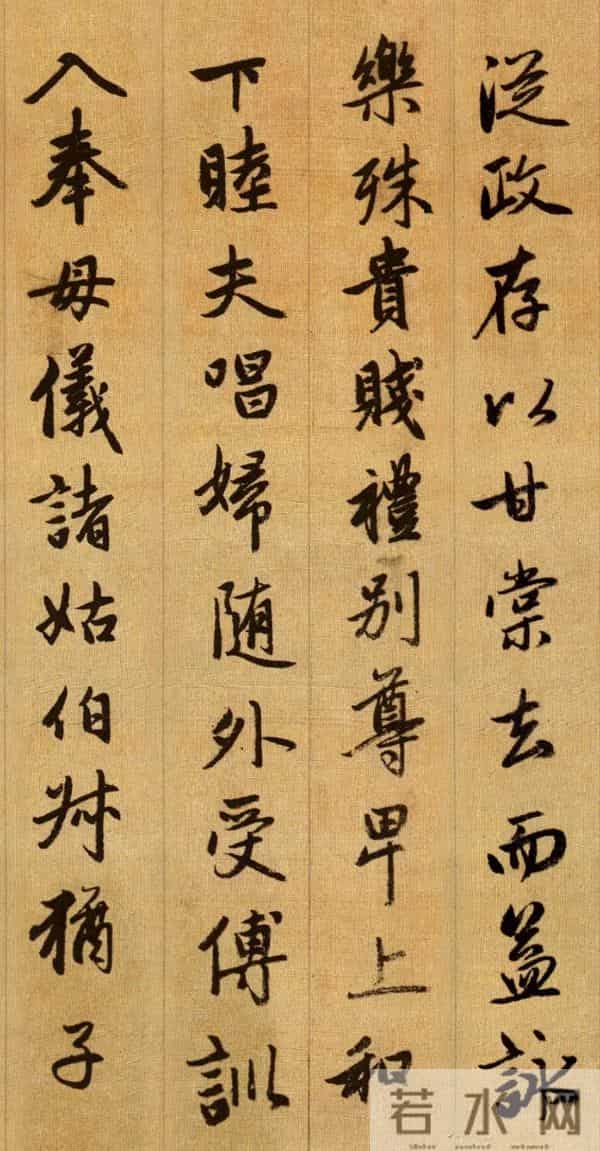 從政存以甘棠去而益詠
樂殊貴賤禮別尊卑上和
下睦夫唱婦隨外受傅訓
入奉母儀諸姑伯叔猶子
若水网